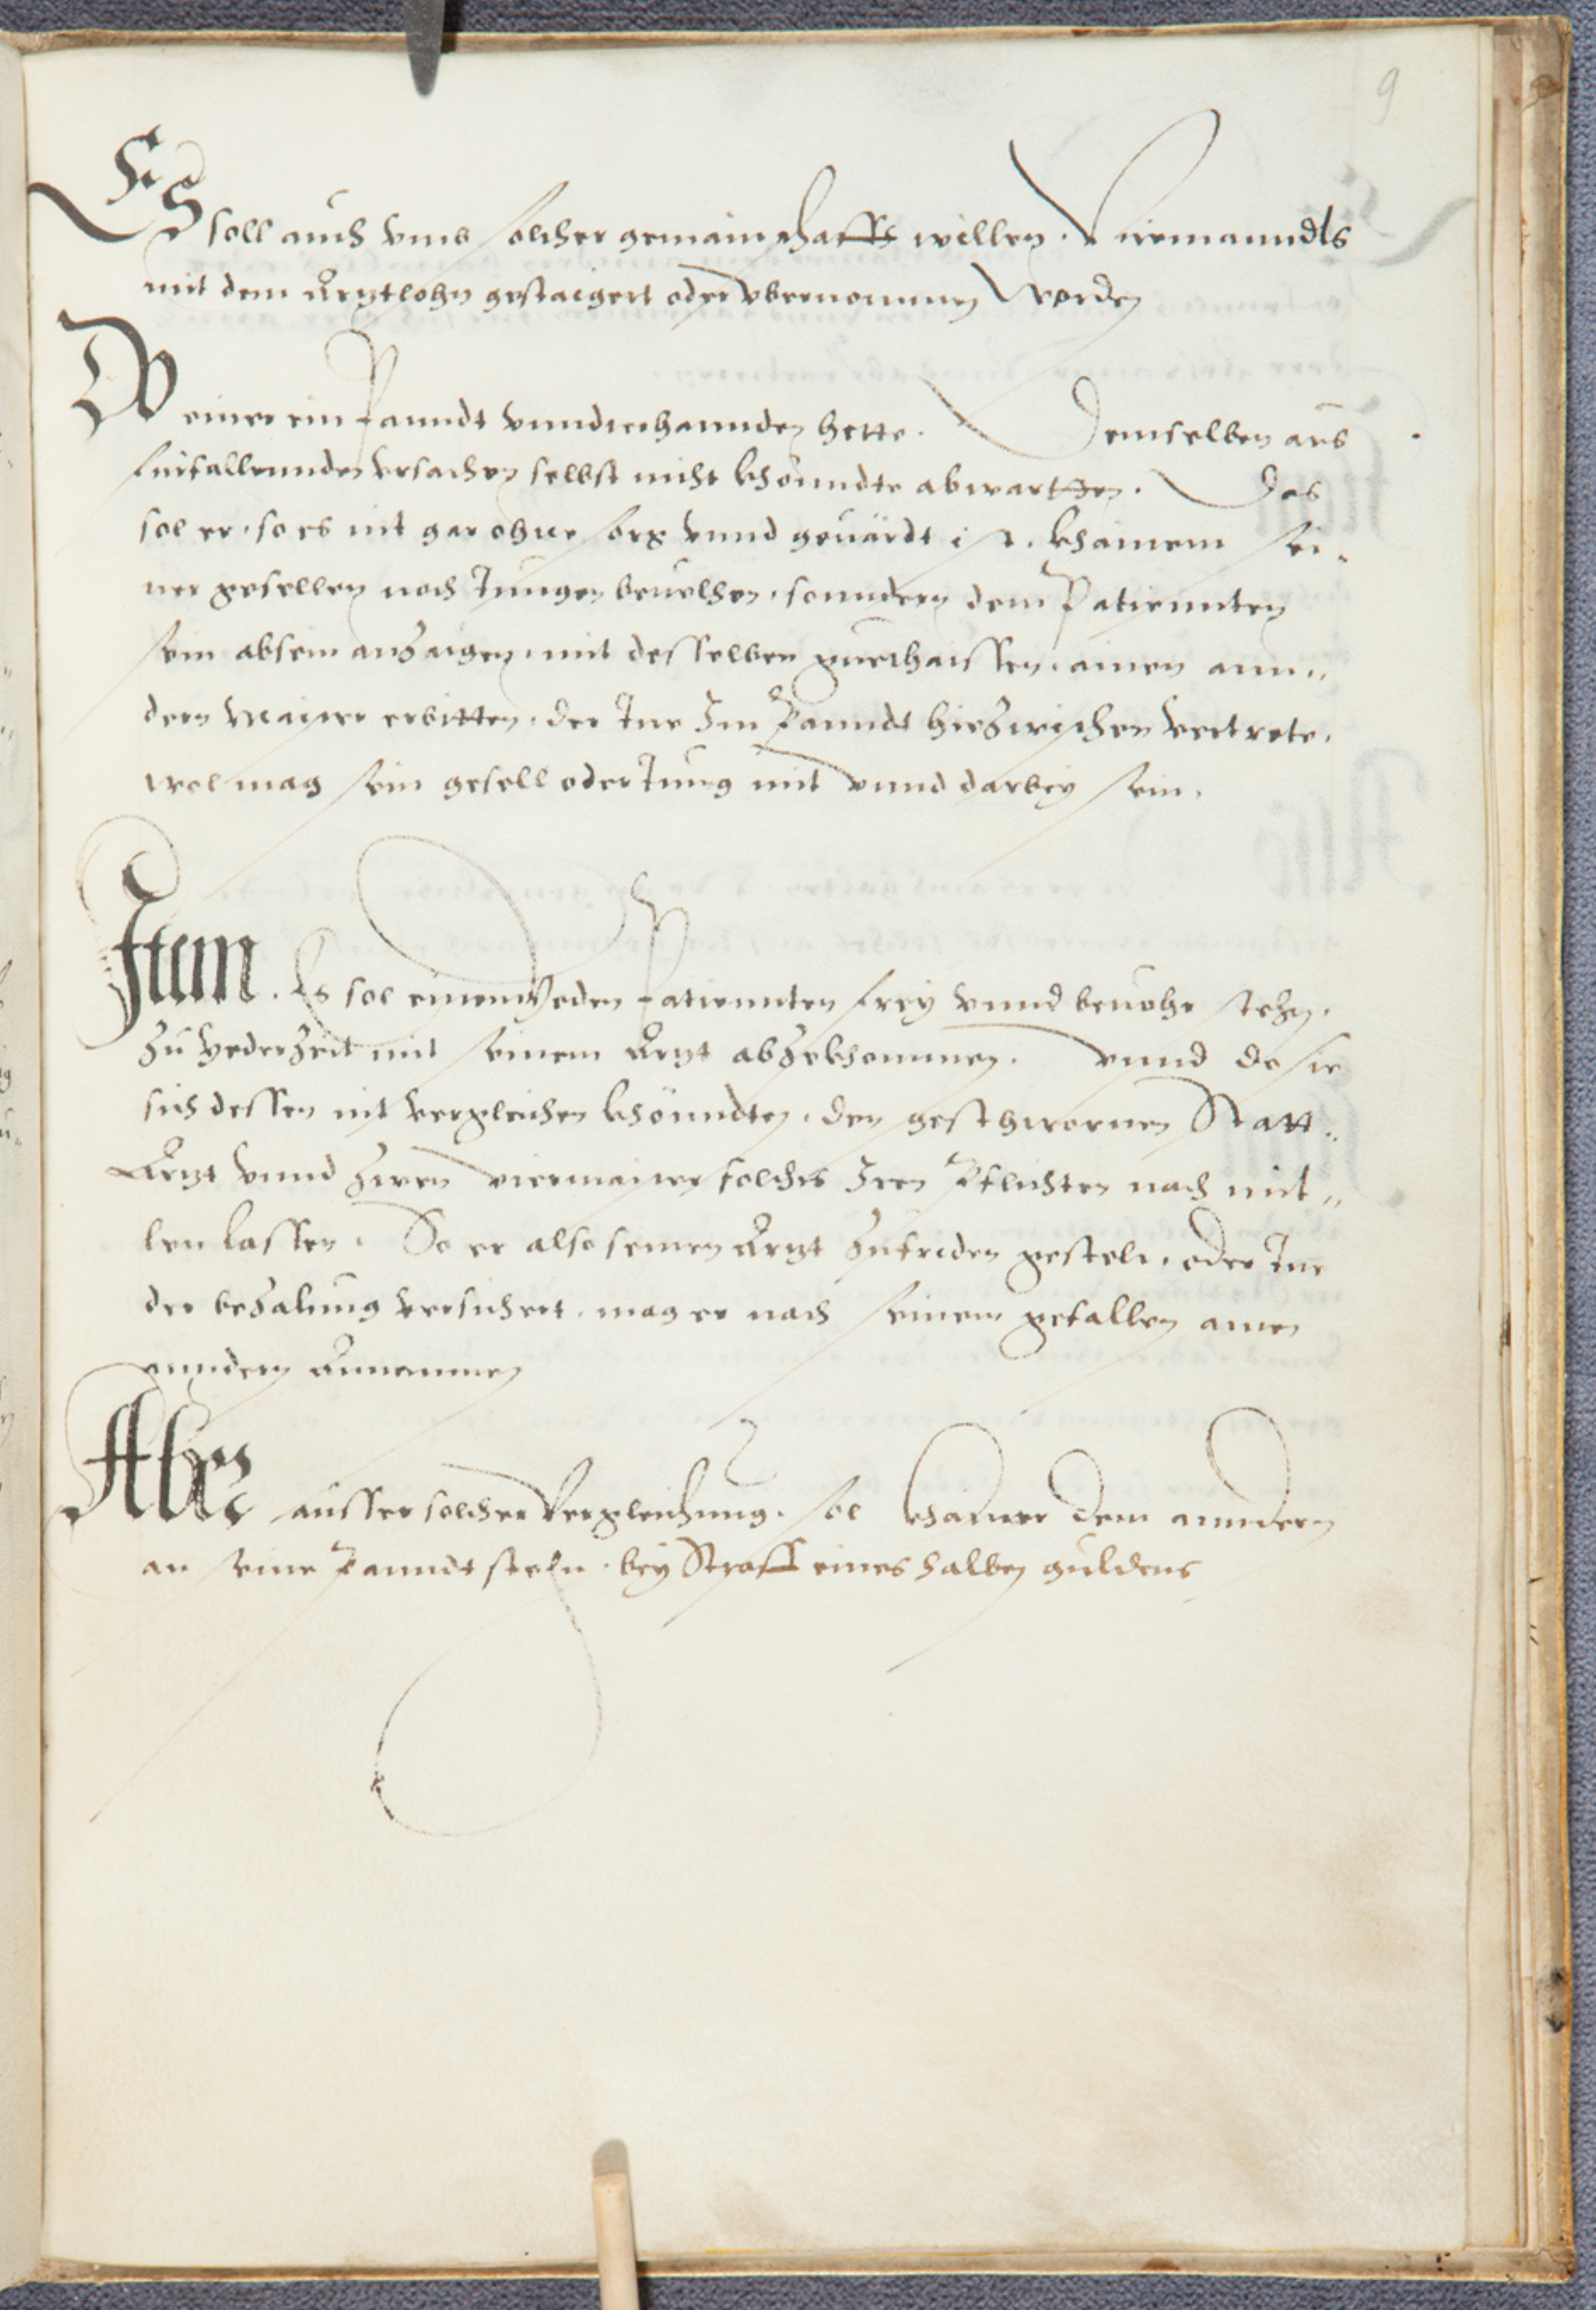 9
Es soll auch vmb solcher gemainschafft willen. Niemanndts
mit dem Arztlohn gestaigert oder vbernommen Werden
Wo einer ein Panndt vnnder hannden hette. Demselben aus
fürfallennden vrsachen selbst nicht khönndte abwartten. Das
sol er. so es nit gar ohne sorg vnnd geuärdt ist. khainem sei-
ner gesellen noch Jungen beuelhen. sonndern dem Patiennten
sein absein anzaigen. mit desselben guethaissen. ainen ann-
dern Maister erbitten. der Ine Im Panndt hiezwischen vertrete.
wol mag sein gesell oder Jung mit vnnd darbey sein.
Item. Es sol einem Yeden Patiennten frey vnnd beuohr stehn.
zu yederzeit mit seinem Arzt abzekhommen. vnnd do sie
sich dessen nit vergleichen khönndten. den geschwornen Statt-
Arzt vnnd zwen viermaister solches Iren Pflichten nach mit-
len lassen. So er also seinen Arzt zufriden gestelt. oder Ine
der bezalung versichert. mag er nach seinem gefallen ainen
anndern Annemmen
Aber ausser solcher Vergleichung. sol khainer dem anndern
an seine Panndt stehn. bey Straff eines halben guldens